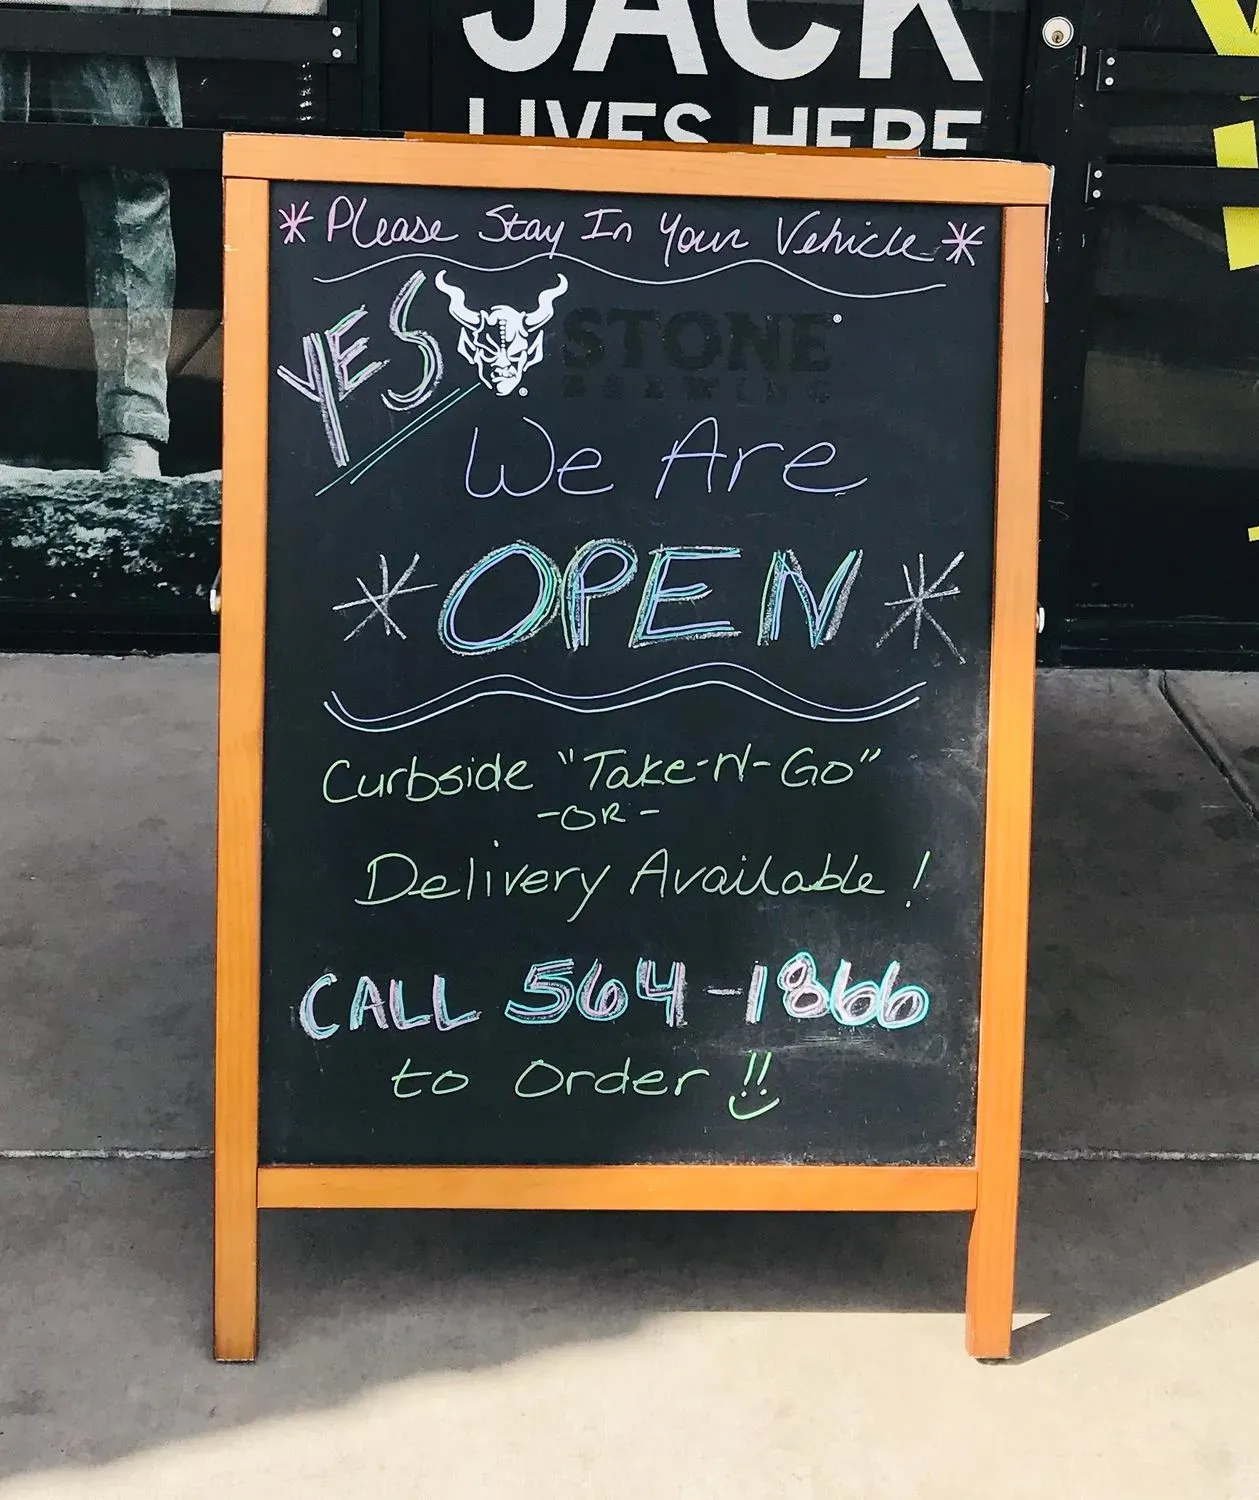 JACK
LIVES HERE
* Please Stay In Your Vehicle *
YES
STONE®
BREWING
We Are
* OPEN *
Curbside "Take-N-Go"
-OR-
Delivery Available!
CALL 564-1866
to Order !!